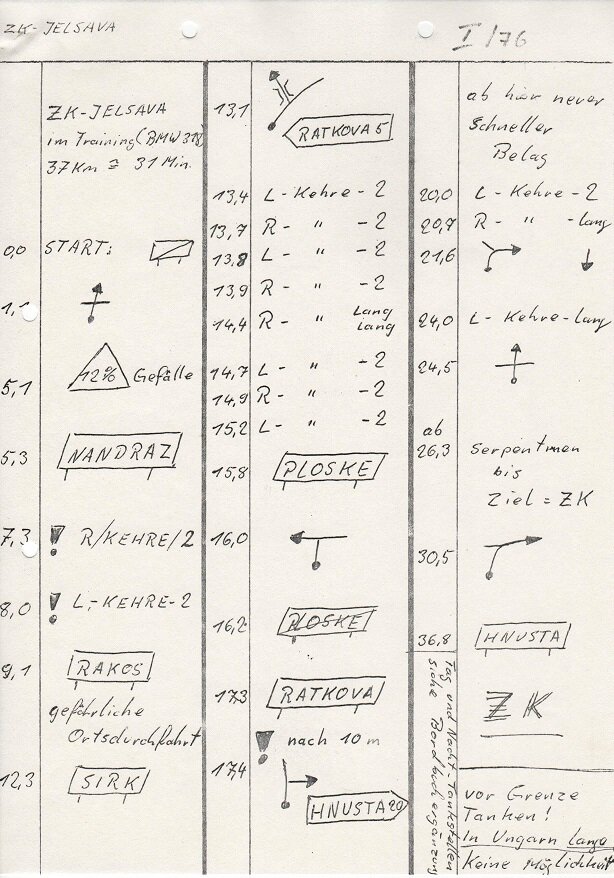 ZK-JELSAVA
I/76
ZK-JELSAVA
im Training (BMW 318)
37 Km ≙ 31 Min.
0,0 START:
1,1
5,1 12% Gefälle
5,3 NANDRAZ
7,3 ! R/KEHRE/2
8,0 ! L,-KEHRE-2
9,1 RAKOS
gefährliche
Ortsdurchfahrt
12,3 SIRK
13,1 RATKOVA 5
13,4 L-Kehre-2
13,7 R- " -2
13,8 L- " -2
13,9 R- " -2
14,4 R- " Lang
lang
14,7 L- " -2
14,9 R- " -2
15,2 L- " -2
15,8 PLOSKE
16,0
16,2 PLOSKE
17,3 RATKOVA
! nach 10 m
17,4 HNUSTA 20
ab hier neuer
schneller
Belag
20,0 L-Kehre-2
20,7 R- " -lang
21,6
24,0 L-Kehre-lang
24,5
ab
26,3 Serpentinen
bis
Ziel = ZK
30,5
36,8 HNUSTA
ZK
Tag und Nacht-Tankstellen
siehe Bordbuchergänzung
vor Grenze
Tanken!
In Ungarn lange
Keine Möglichkeit